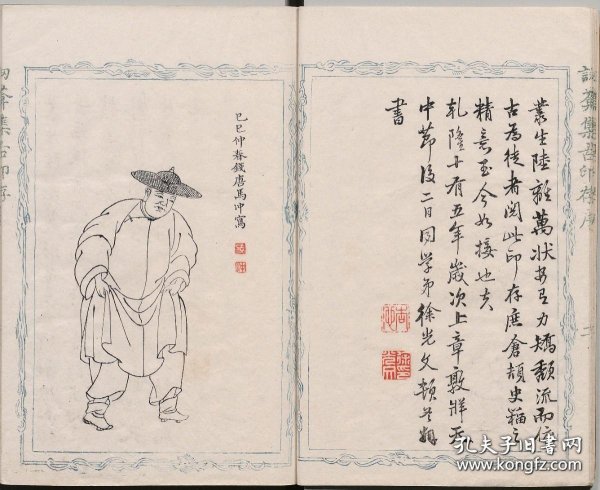 訒葊集古印存序
叢生陸離萬狀安有力矯頹流而信
古為徒者閱此印存庶倉頡史籀之
精意至今如接也夫
乾隆十有五年歲次上章敦牂天
中節後二日同學弟徐光文頓首拜
書
己巳仲春錢唐馬冲寫
訒葊集古印存
孔夫子旧书网
www.kongfz.com